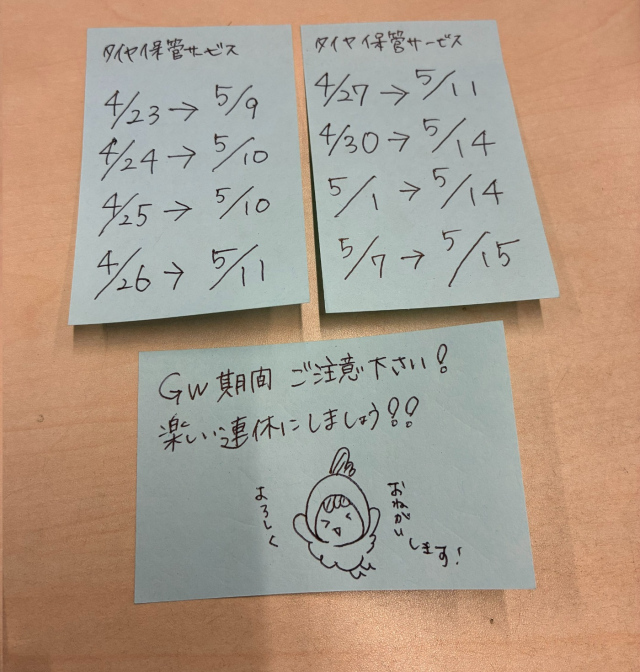 タイヤ保管サービス
4/23→5/9
4/24→5/10
4/25→5/10
4/26→5/11
タイヤ保管サービス
4/27→5/11
4/30→5/14
5/1→5/14
5/7→5/15
GW期間 ご注意下さい!
楽しい連休にしましょう!!
よろしく
おねがい
します!